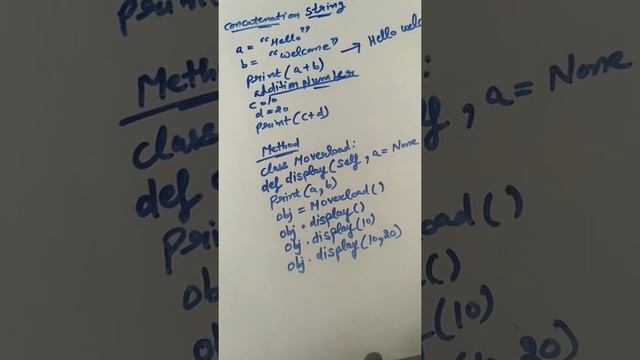 concatenation string
a = "Hello"
b = "welcome" → Hello welc
print(a+b)
addition Number
c = 10
d = 20
print(c+d)
Method
class Moverload:
def display(self, a = None
print(a, b)
obj = Moverload()
obj. display()
obj. display(10)
obj. display(10,20)